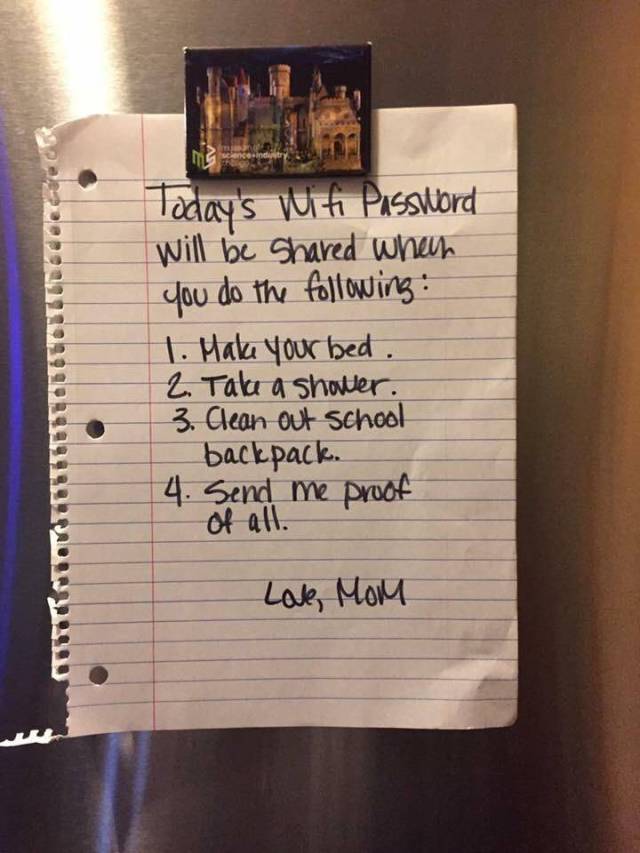 museum of
science+industry
chicago
Today's Wifi Password
will be shared when
you do the following:
1. Make your bed.
2. Take a shower.
3. Clean out school
backpack.
4. Send me proof
of all.
Love, Mom